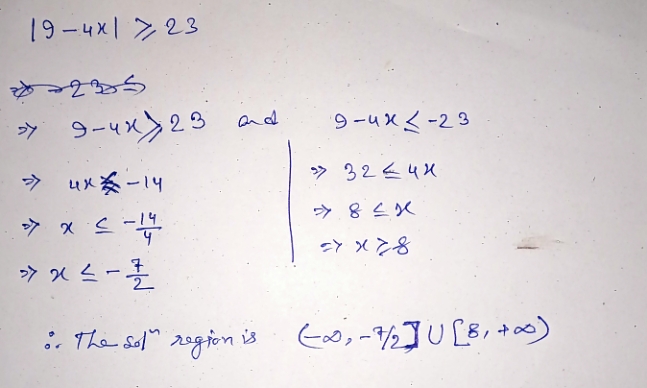 |9-4x| ≥ 23
⇒ 9-4x ≥ 23 and 9-4x ≤ -23
⇒ 4x ≤ -14
⇒ x ≤ -14/4
⇒ x ≤ -7/2
⇒ 32 ≤ 4x
⇒ 8 ≤ x
⇒ x ≥ 8
∴ The solⁿ region is (-∞, -7/2] U [8, +∞)